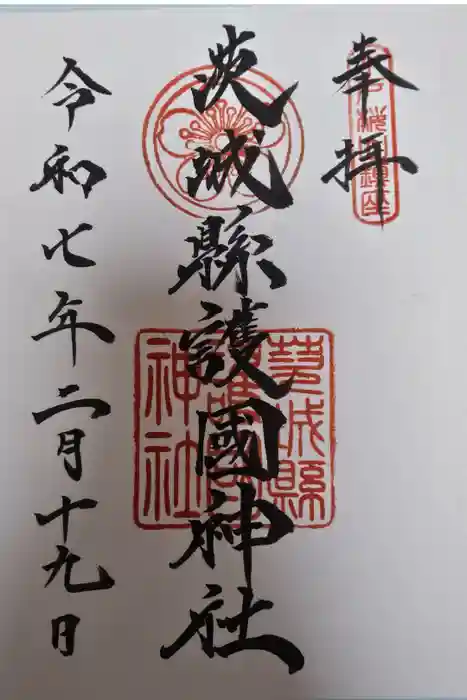 奉拝
茨城縣護國神社
令和七年二月十九日
茨城縣
護國
神社